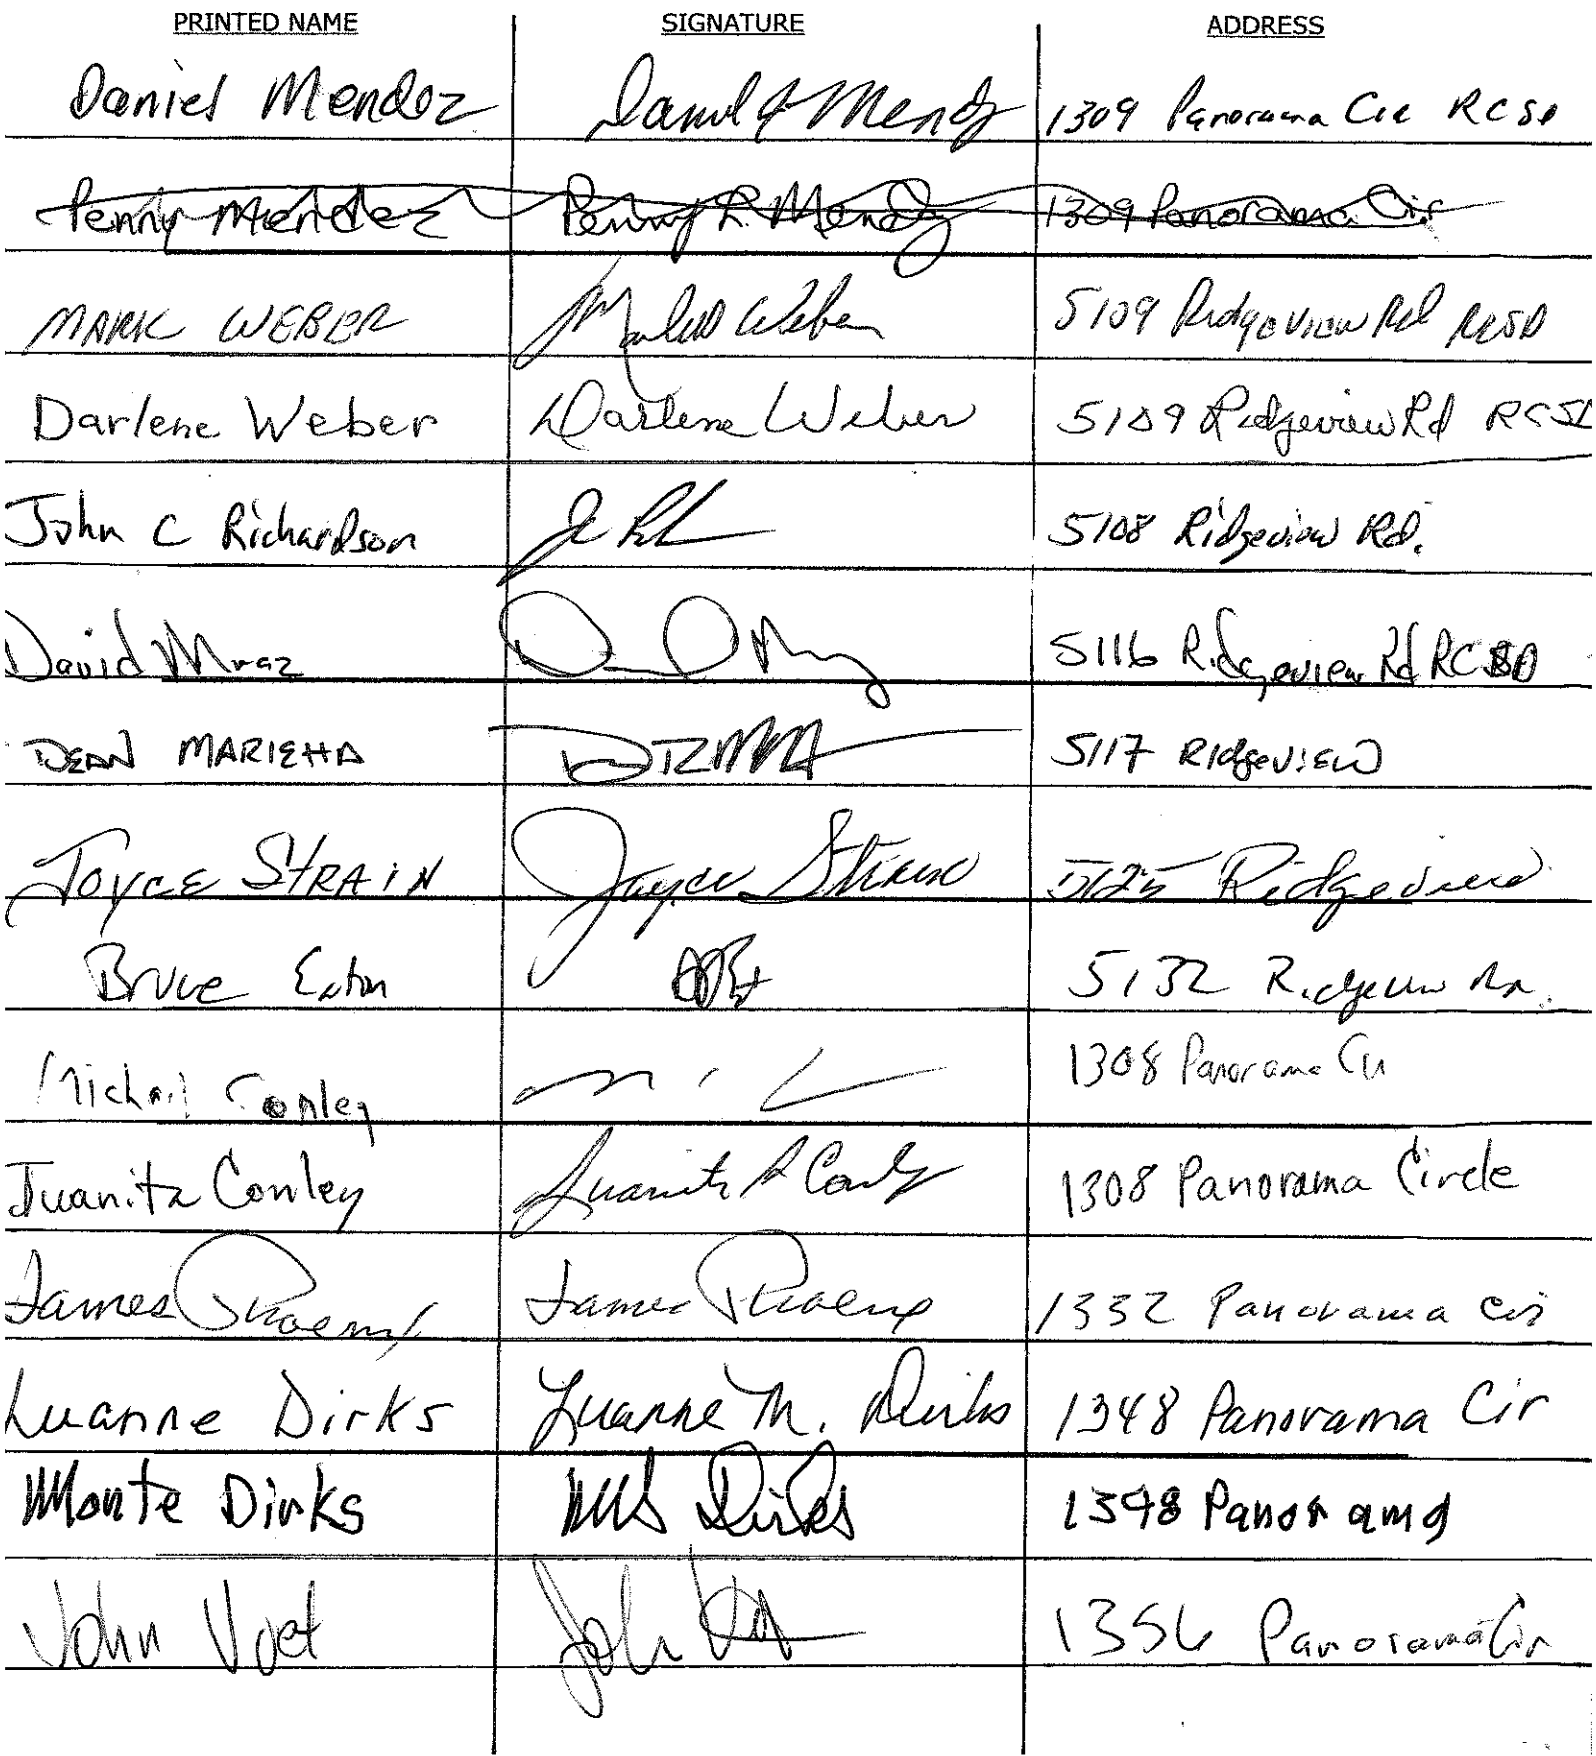 PRINTED NAME SIGNATURE ADDRESS
Daniel Mendoz Daniel J Mendz 1309 Panorama Cir RCSD
Penny Mendez Penny L. Mendz 1309 Panorama Cir
MARK WEBER Weber 5109 Ridgeview Rd RCSD
Darlene Weber Darlene Weber 5109 Ridgeview Rd RCSD
John C Richardson 5108 Ridgeview Rd.
David Mraz 5116 Ridgeview Rd RCSD
DEAN MARIEHA 5117 RIdgeVIEW
JOYCE STRAIN Joyce Strain 5125 Ridgeview
Bruce Eaton 5132 Ridgeview
Michael Conley 1308 Panorama Cir
Juanita Conley Juanita A Conly 1308 Panorama Circle
James James 1332 Panorama cir
Luanne Dirks Luanne M. Dirks 1348 Panorama Cir
Monte Dirks Dirks 1348 Panorama
John Voet John 1356 Panorama Cir